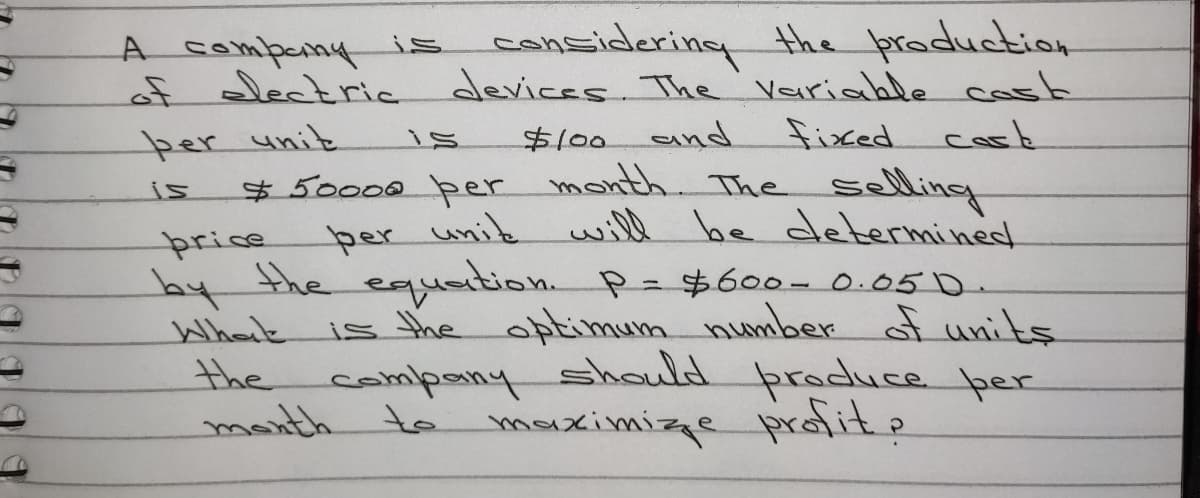 A company is considering the production
of electric devices. The variable cost
per unit is $100 and fixed cost
is $50000 per month. The selling
price per unit will be determined
by the equation. P = $600 - 0.05 D.
What is the optimum number of units
the company should produce per
month to maximize profit?